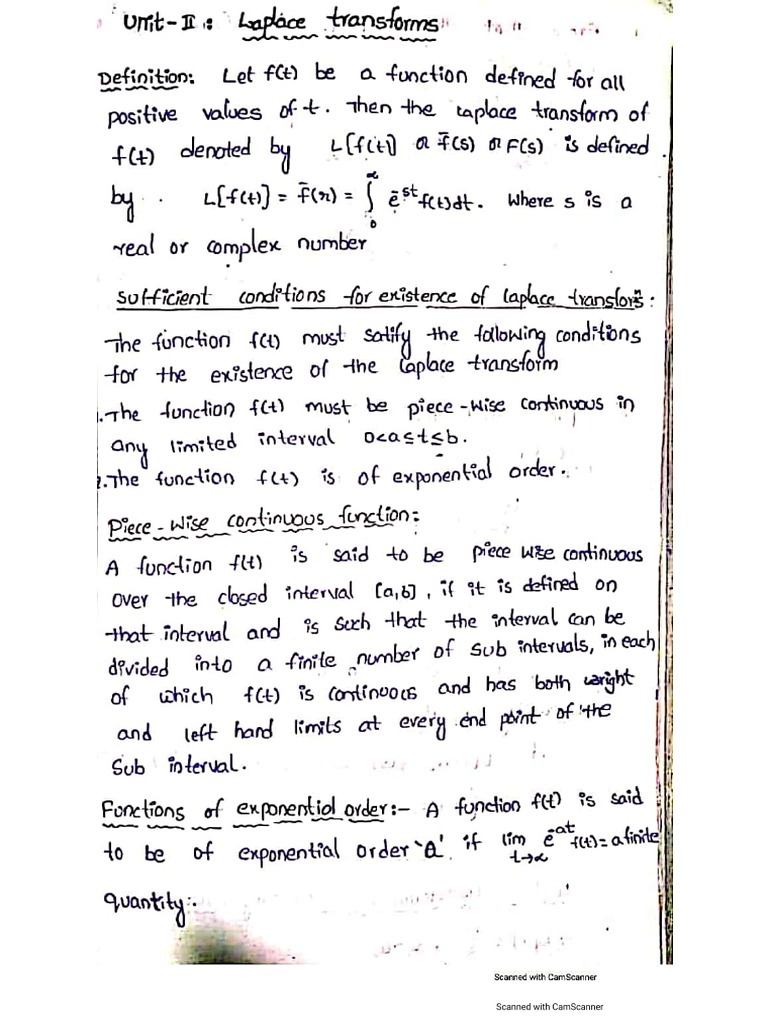 Unit-II: Laplace transforms
Definition: Let f(t) be a function defined for all
positive values of t. Then the Laplace transform of
f(t) denoted by L[f(t)] or f̄(s) or F(s) is defined
by. L[f(t)] = f̄(s) = ∫₀^∞ e^-st f(t)dt. where s is a
real or complex number
sufficient conditions for existence of Laplace transfors:
The function f(t) must satify the following conditions
for the existence of the Laplace transform
1.The function f(t) must be piece-wise continuous in
any limited interval 0<a≤t≤b.
2.The function f(t) is of exponential order.
Piece-wise continuous function:
A function f(t) is said to be piece wise continuous
over the closed interval [a,b], if it is defined on
that interval and is such that the interval can be
divided into a finite number of sub intervals, in each
of which f(t) is continuous and has both right
and left hand limits at every end point of the
Sub interval.
Functions of exponential order:- A function f(t) is said
to be of exponential order 'a' if lim t→∞ e^-at f(t)= a finite
quantity:.
Scanned with CamScanner
Scanned with CamScanner